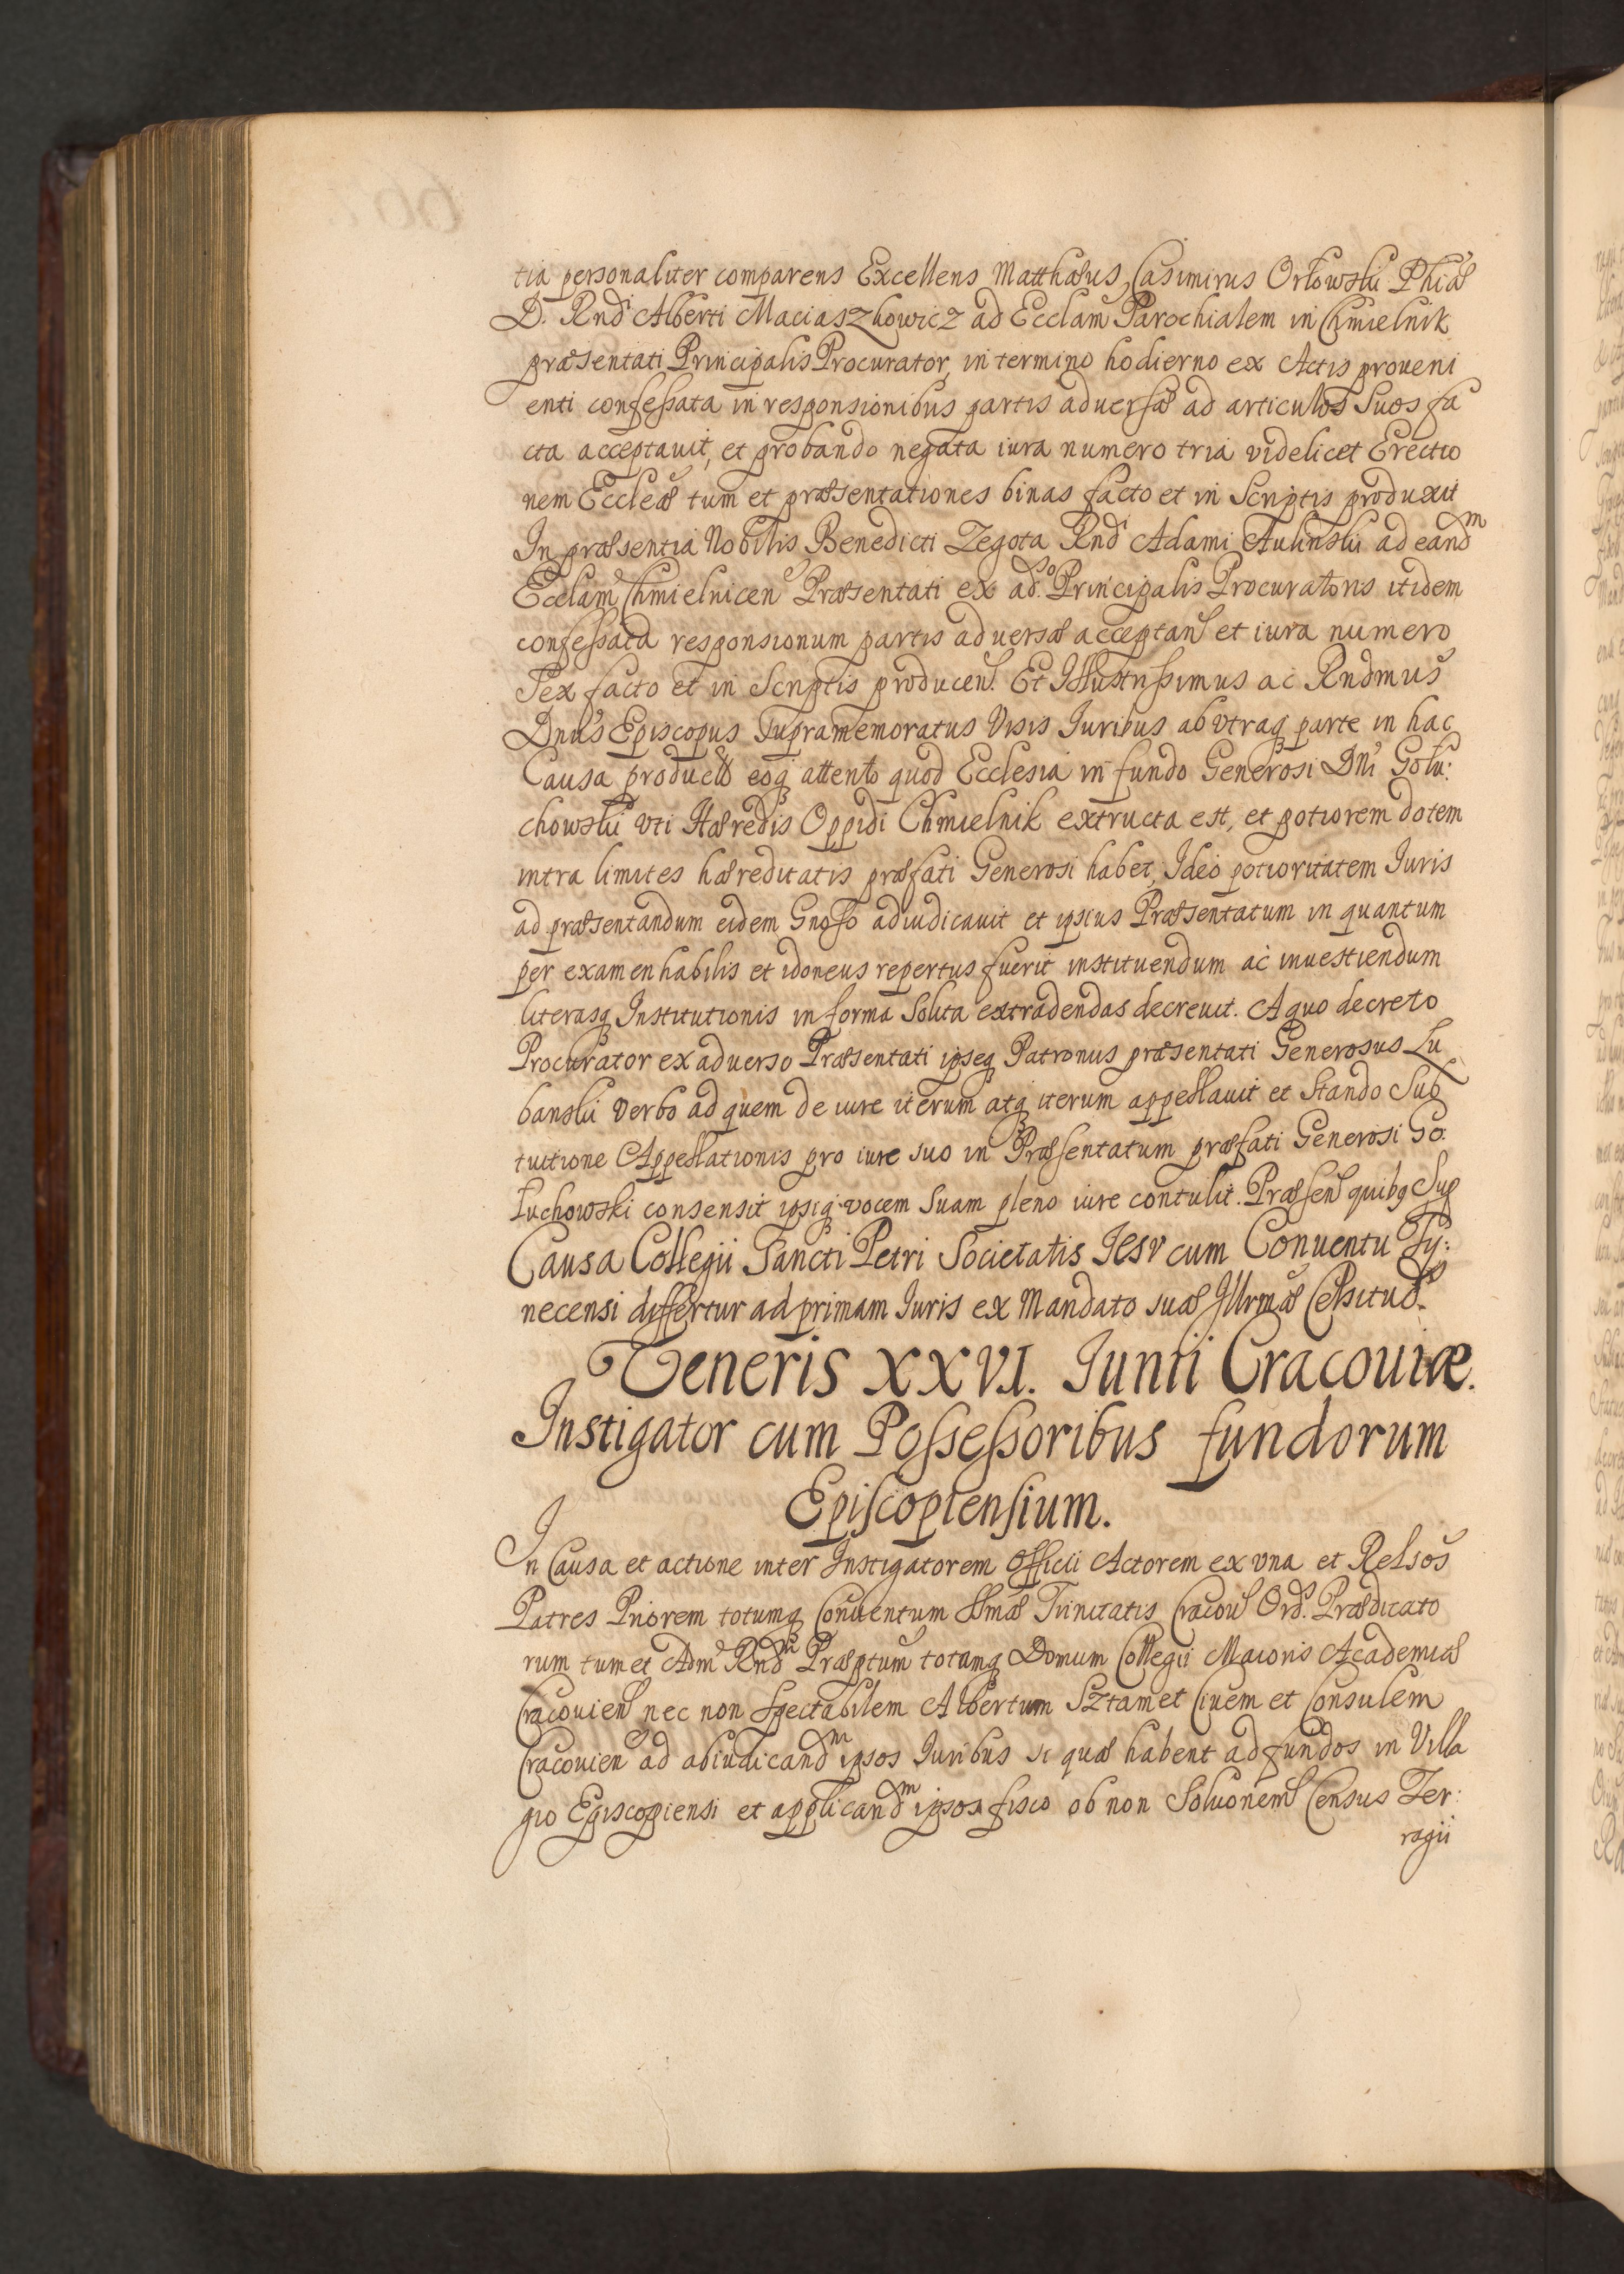 tia personaliter comparens Excellens Matthæus Casimirus Orłowski Phiæ
D. Rndi Alberti Maciaszkowicz ad Ecclam Parochialem in Chmielnik
præsentati Principalis Procurator, in termino hodierno ex Actis proueni
enti confessata in responsionibus partis aduersæ ad articulos suos fa
cta acceptauit, et probando negata iura numero tria videlicet Erectio
nem Eccleæ tum et præsentationes binas facto et in Scriptis produxit
In præsentia Nobilis Benedicti Zegota Rndi Adami Aulinski ad eandm
Ecclam Chmielnicen Præsentati ex adso Principalis Procuratoris itidem
confessata responsionum partis aduersæ acceptan et iura numero
Sex facto et in Scriptis producen. Et Illustrissimus ac Rndmus
Dnus Episcopus Supramemoratus Visis Iuribus ab vtraq parte in hac
Causa productis eoq attento quod Ecclesia in fundo Generosi Dni Golu:
chowski vti Hæredis Oppidi Chmielnik extructa est, et potiorem dotem
intra limites hæreditatis præfati Generosi habet, Ideo potioritatem Iuris
ad præsentandum eidem Gnoso adiudicauit et ipsius Præsentatum in quantum
per examen habilis et idoneus repertus fuerit instituendum ac inuestiendum
literasq Institutionis in forma Solita extradendas decreuit. A quo decreto
Procurator ex aduerso Præsentati ipseq Patronus præsentati Generosus Lu
banski verbo ad quem de iure iterum atq iterum appellauit et Stando Sub
tuitione Appellationis pro iure suo in Præsentatum præfati Generosi Go.
łuchowski consensit ipsiq vocem suam pleno iure contulit. Præsen quibq Sup
Causa Collegii Sancti Petri Societatis Iesv cum Conuentu Ty:
necensi differtur ad primam Iuris ex Mandato suæ Illrmæ Celsitudis
Veneris XXVI. Iunii Cracouiæ.
Instigator cum Possessoribus fundorum
Episcopiensium.
In Causa et actione inter Instigatorem Officii Actorem ex vna et Relsos
Patres Priorem totumq Conuentum SSmæ Trinitatis Cracou Ord. Prædicato
rum tum et Adm Rndm Præptum totamq Domum Collegii Maioris Academiæ
Cracouien nec non Spectabilem Albertum Sztamet Ciuem et Consulem
Cracouien ad abiudicandm ipsos Iuribus si quæ habent ad fundos in Villa
gio Episcopiensi et applicandm ipsos fisco ob non Soluonem Census Ter:
ragii